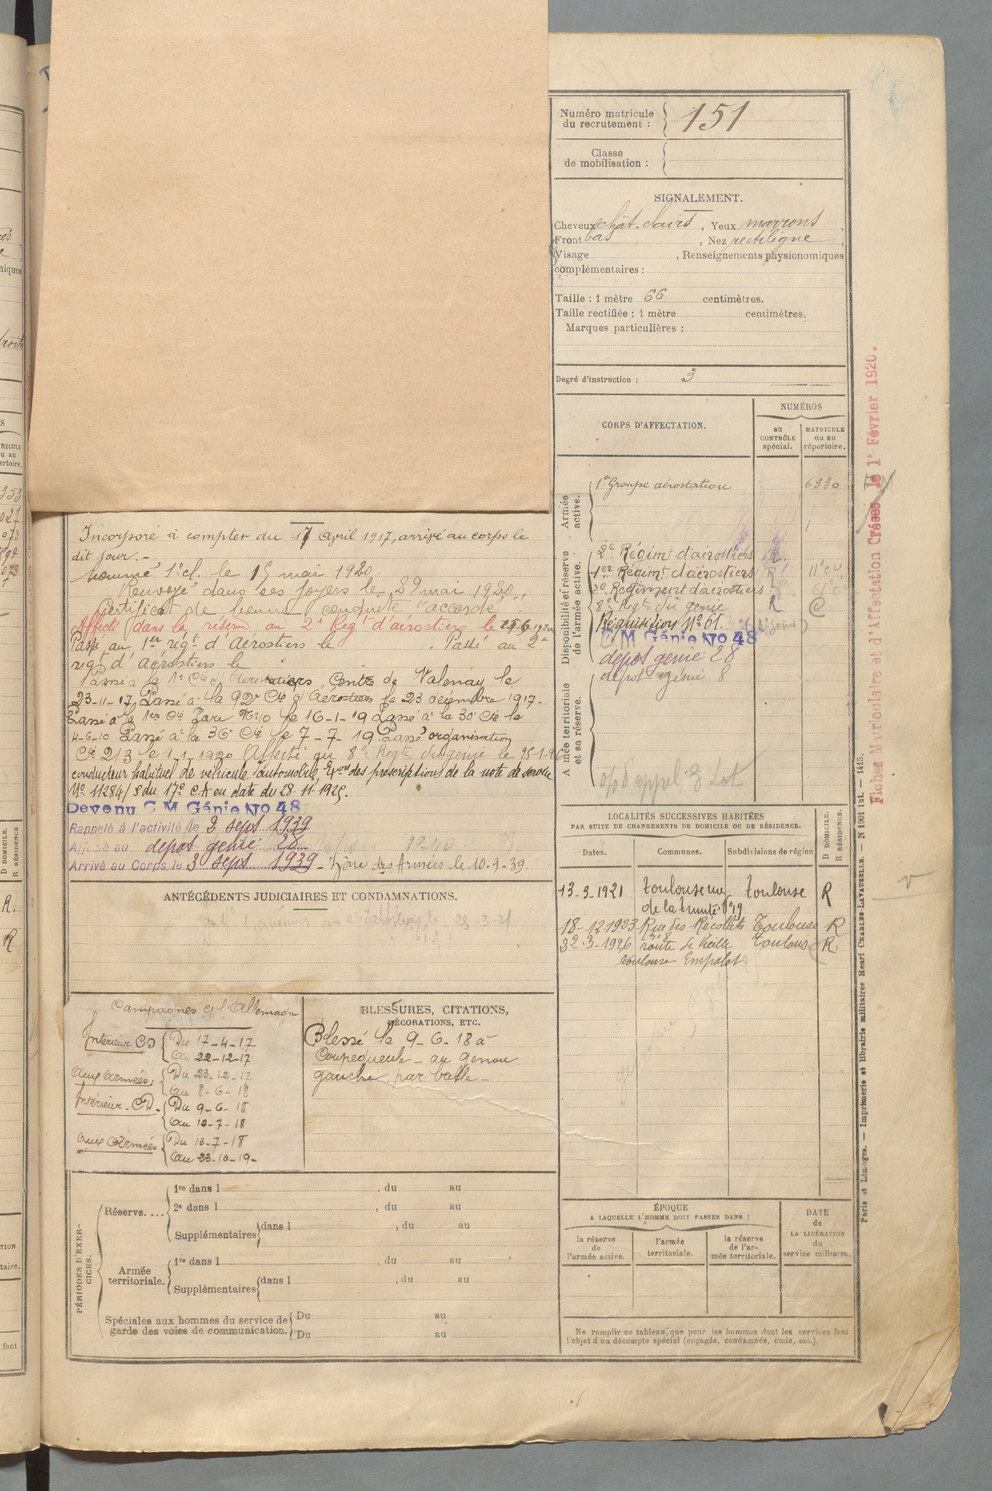 Numéro matricule
du recrutement :
151
Classe
de mobilisation :
SIGNALEMENT.
Cheveux chât. clairs, Yeux marrons
Front bas, Nez rectiligne
Visage, Renseignements physionomiques
complémentaires :
Taille : 1 mètre 66 centimètres.
Taille rectifiée : 1 mètre centimètres.
Marques particulières :
Degré d'instruction : 3
CORPS D'AFFECTATION.
NUMÉROS
au
CONTRÔLE
spécial.
MATRICULE
ou au
répertoire.
Armée
active.
1er Groupe aérostation 6330
Disponibilité et réserve
de l'armée active.
2e Régimt d'aérostiers
1er Régimt d'aérostiers R
2e Régiment d'aérostiers
8e Regt du génie R
Réquisitions No 61.
C M Génie No 48
dépot génie 28
dépot génie 8
Armée territoriale
et sa réserve.
Incorporé à compter du 17 April 1917, arrivé au corps le
dit jour. -
Nommé 1e cl. le 15 mai 1920
Renvoyé dans ses foyers le 29 mai 1920.
Certificat de bonne conduite "accordé".
Affecté dans la réserve au 2e Régt d'aérostiers le
Passé au 1er régt d'Aérostiers le . Passé au 2e
régt d'aérostiers le
Passé à la Cie d'Aérostiers, Centre de Valenay le
23-11-17, Passé à la 92e Cie d'Aérostiers le 23 décembre 1917.
Passé à la le 16-1-19 Passé à la 30e Cie le
Passé à la 36e Cie le 7-7-19 Passé organisation
Cie 2/3 le 1-1-1920 Affecté au 8e Regt du génie le
conducteur habituel de véhicule automobile, des prescriptions de la note de service
No 11284/S du 17e C.A en date du 28.11.1925.
Devenu C M Génie No 48
Rappelé à l'activité le 3 sept 1939
Affecté au dépot génie 28
Arrivé au Corps le 3 sept 1939 - Zône des Armées le 10-9-39.
ANTÉCÉDENTS JUDICIAIRES ET CONDAMNATIONS.
LOCALITÉS SUCCESSIVES HABITÉES
PAR SUITE DE CHANGEMENTS DE DOMICILE OU DE RÉSIDENCE.
Dates. Communes. Subdivisions de région
D DOMICILE.
R RÉSIDENCE.
13.9.1921 Toulouse rue Toulouse R
de la trinité No 19
18-12-1923 Rue des Récollets Toulouse R
22-3-1926 route de Vieille Toulouse R
Toulouse Empalot
Campagnes c/ l'Allemagne
Intérieur CD Du 17-4-17
Au 22-12-17
Aux Armées: Du 23-12-17
Au 8-6-18
Intérieur - CD. Du 9-6-18
Au 10-7-18
Aux Armées Du 13-7-18
Au 23-10-19-
BLESSURES, CITATIONS,
DÉCORATIONS, ETC.
Blessé le 9-6-18 à
Coupequeule - au genou
gauche par balle -
PÉRIODES D'EXER-
CICES.
Réserve....
1re dans l , du au
2e dans l , du au
Supplémentaires dans l , du au
Armée
territoriale.
1re dans l , du au
Supplémentaires dans l , du au
Spéciales aux hommes du service de
garde des voies de communication.
Du au
Du au
ÉPOQUE
A LAQUELLE L'HOMME DOIT PASSER DANS :
la réserve
de
l'armée active.
l'armée
territoriale.
la réserve
de l'ar-
mée territoriale.
DATE
de
LA LIBÉRATION
du
service militaire.
Ne remplir ce tableau que pour les hommes dont les services font
l'objet d'un décompte spécial (engagés, condamnés, omis, etc.).
Fiches Matriculaire et d'Affectation Créées le 1r Février 1920.
Paris et Limoges. — Imprimerie et librairie militaires Henri CHARLES-LAVAUZELLE.